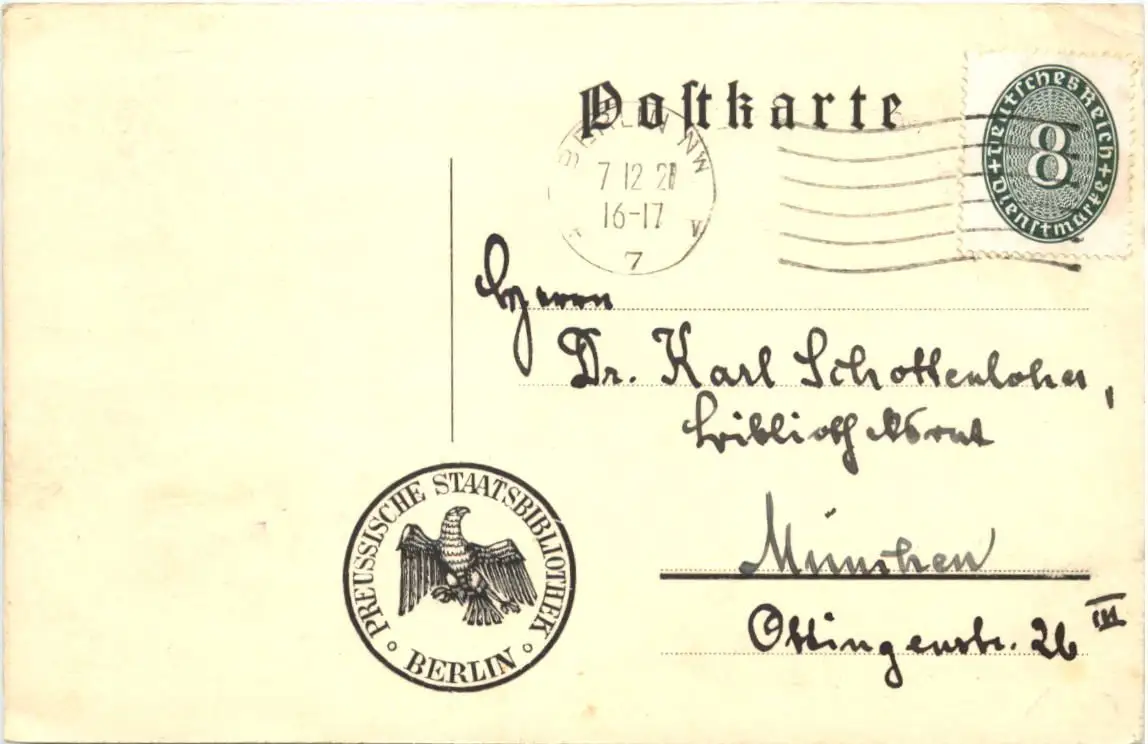 Postkarte
Deutsches Reich
8
Dienstmarke
BERLIN NW
7 12 2
16-17
V
7
Herrn
Dr. Karl Schottenloher,
Bibliotheksrat
München
Ottingenstr. 26 III
PREUSSISCHE STAATSBIBLIOTHEK
BERLIN